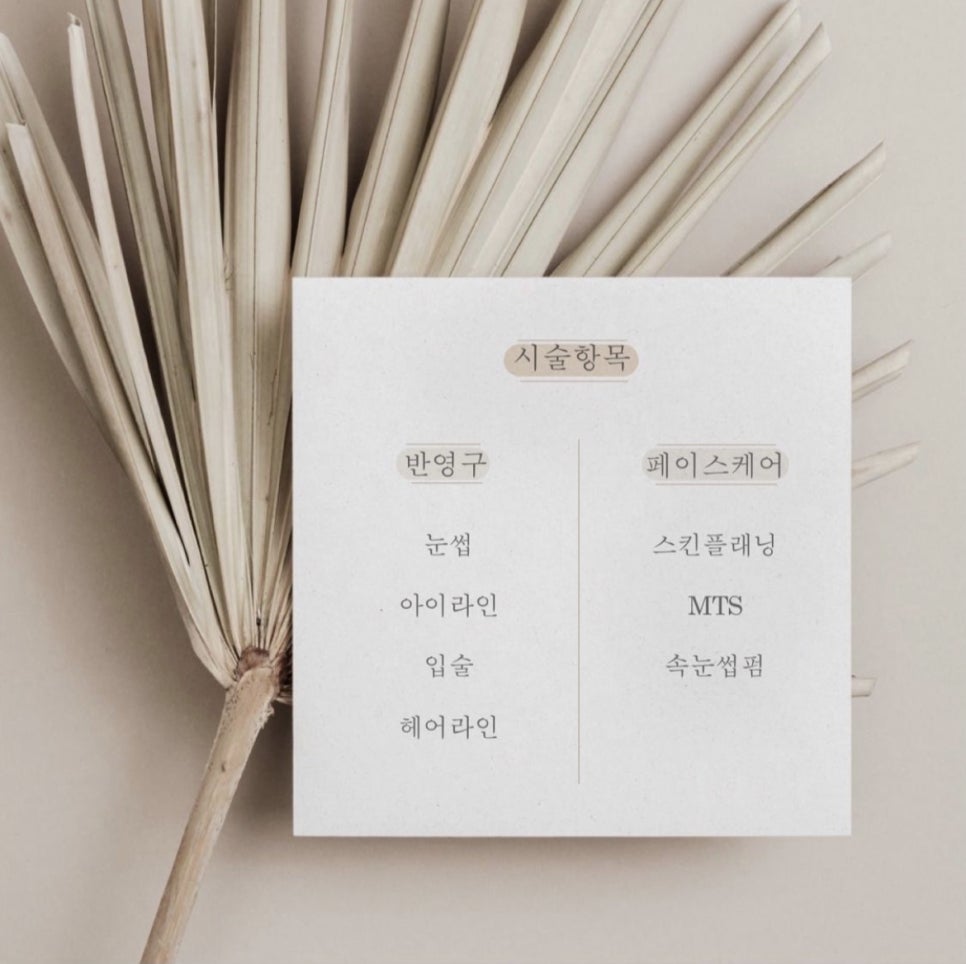 시술항목
반영구
눈썹
아이라인
입술
헤어라인
페이스케어
스킨플래닝
MTS
속눈썹펌